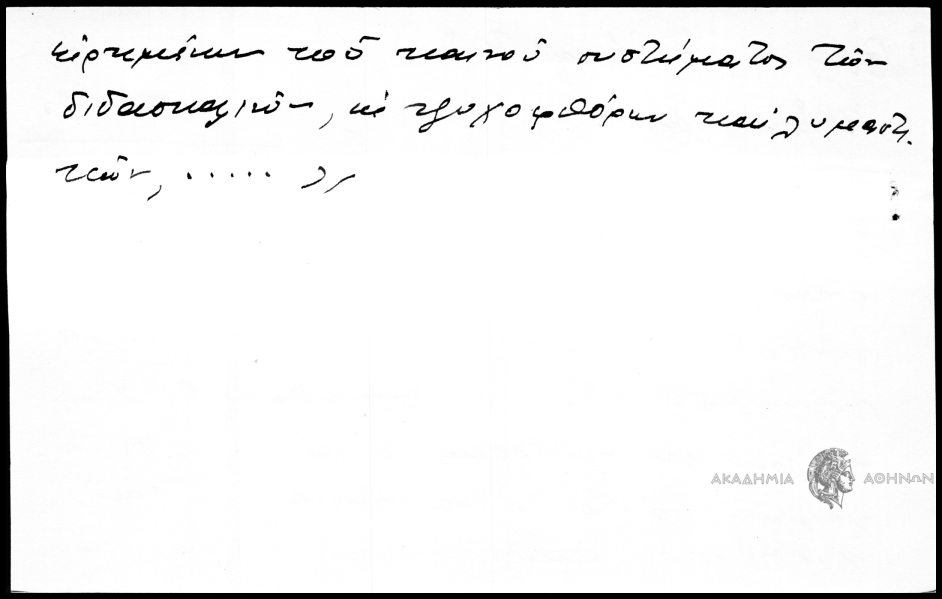 εἰρημένων τοῦ κοινοῦ συστήματος τῶν
διδασκαλιῶν, ὡς ψυχοφθόρων καὶ λυμαντι-
κῶν, ..... »,
ΑΚΑΔΗΜΙΑ ΑΘΗΝΩΝ